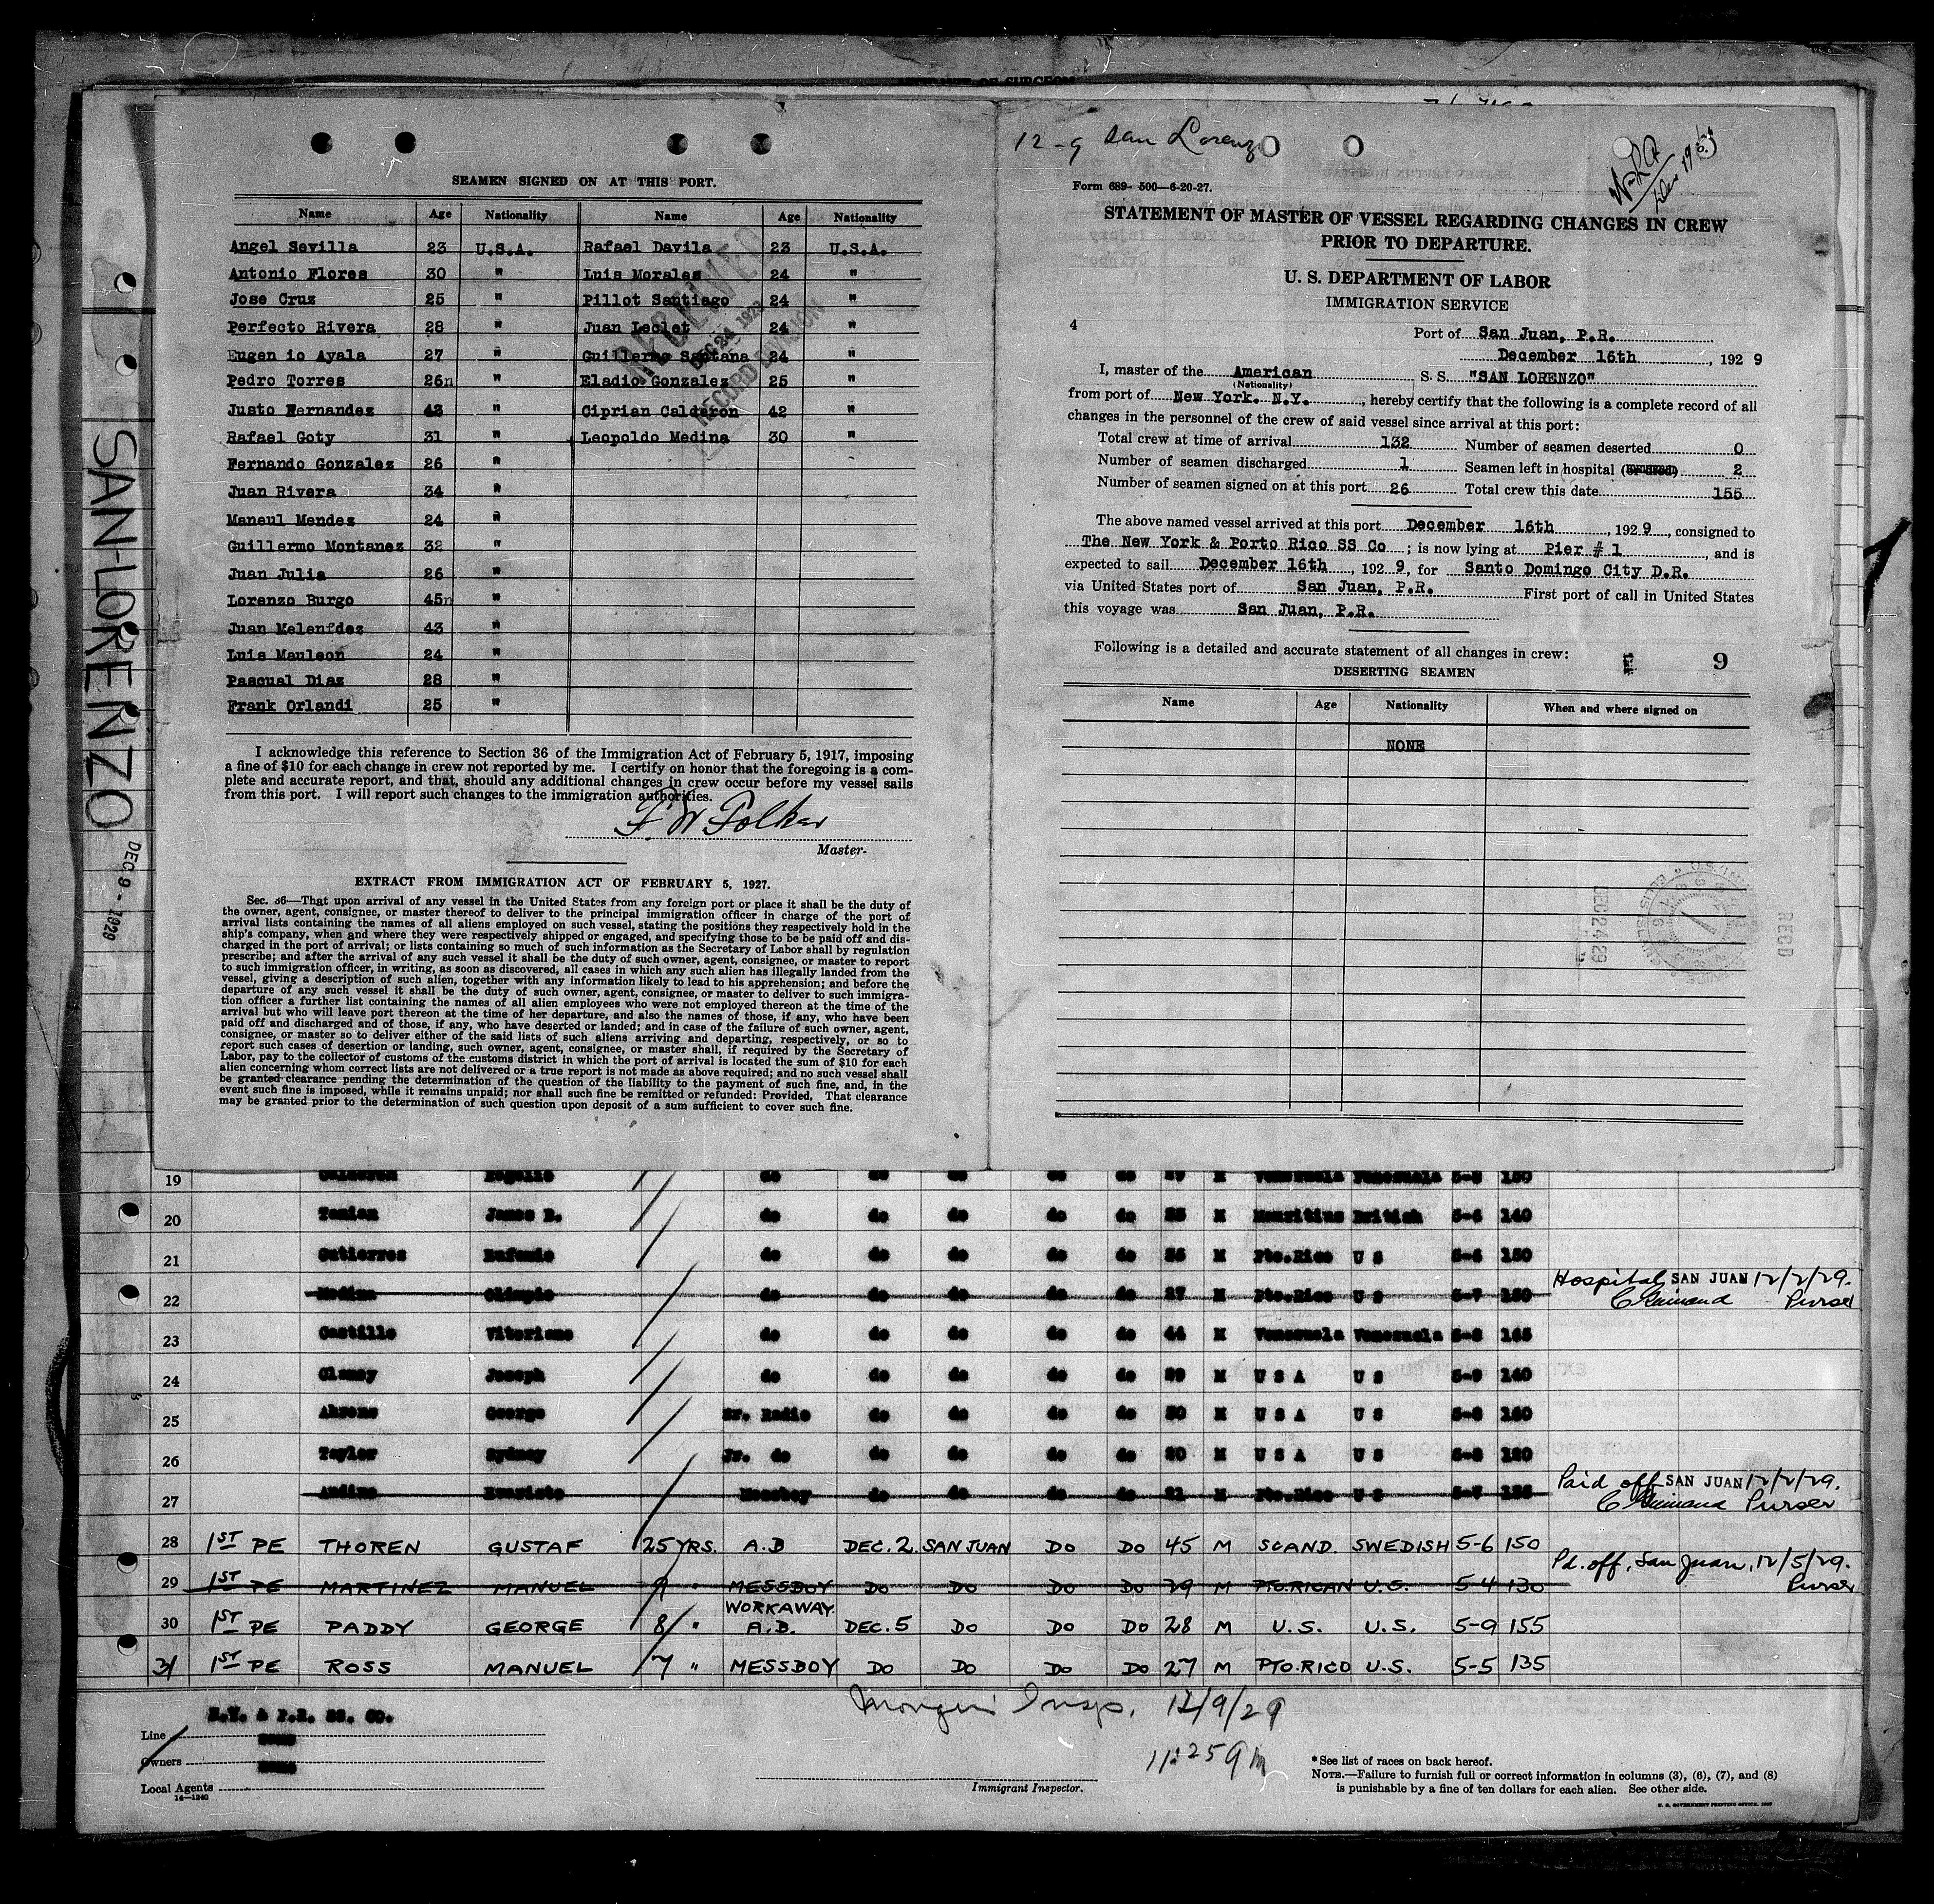 AFFIDAVIT OF SURGEON
SAN-LORENZO DEC 9 - 1929
SEAMEN SIGNED ON AT THIS PORT.
Name Age Nationality Name Age Nationality
Angel Sevilla 23 U.S.A. Rafael Davila 23 U.S.A.
Antonio Flores 30 " Luis Morales 24 "
Jose Cruz 25 " Pillot Santiago 24 "
Perfecto Rivera 28 " Juan Leclet 24 "
Eugen io Ayala 27 " Guillermo Santana 24 "
Pedro Torres 26n " Eladio Gonzalez 25 "
Justo Fernandez 43 " Ciprian Calderon 42 "
Rafael Goty 31 " Leopoldo Medina 30 "
Fernando Gonzalez 26 "
Juan Rivera 34 "
Maneul Mendez 24 "
Guillermo Montanez 32 "
Juan Julia 26 "
Lorenzo Burgo 45n "
Juan Melenfdez 43 "
Luis Mauleon 24 "
Pascual Diaz 28 "
Frank Orlandi 25 "
RECEIVED
DEC 24 1929
RECORD DIVISION
I acknowledge this reference to Section 36 of the Immigration Act of February 5, 1917, imposing
a fine of $10 for each change in crew not reported by me. I certify on honor that the foregoing is a com-
plete and accurate report, and that, should any additional changes in crew occur before my vessel sails
from this port. I will report such changes to the immigration authorities.
F W Polkar
Master.
EXTRACT FROM IMMIGRATION ACT OF FEBRUARY 5, 1927.
Sec. 36—That upon arrival of any vessel in the United States from any foreign port or place it shall be the duty of
the owner, agent, consignee, or master thereof to deliver to the principal immigration officer in charge of the port of
arrival lists containing the names of all aliens employed on such vessel, stating the positions they respectively hold in the
ship's company, when and where they were respectively shipped or engaged, and specifying those to be be paid off and dis-
charged in the port of arrival; or lists containing so much of such information as the Secretary of Labor shall by regulation
prescribe; and after the arrival of any such vessel it shall be the duty of such owner, agent, consignee, or master to report
to such immigration officer, in writing, as soon as discovered, all cases in which any such alien has illegally landed from the
vessel, giving a description of such alien, together with any information likely to lead to his apprehension; and before the
departure of any such vessel it shall be the duty of such owner, agent, consignee, or master to deliver to such immigra-
tion officer a further list containing the names of all alien employees who were not employed thereon at the time of the
arrival but who will leave port thereon at the time of her departure, and also the names of those, if any, who have been
paid off and discharged and of those, if any, who have deserted or landed; and in case of the failure of such owner, agent,
consignee, or master so to deliver either of the said lists of such aliens arriving and departing, respectively, or so to
report such cases of desertion or landing, such owner, agent, consignee, or master shall, if required by the Secretary of
Labor, pay to the collector of customs of the customs district in which the port of arrival is located the sum of $10 for each
alien concerning whom correct lists are not delivered or a true report is not made as above required; and no such vessel shall
be granted clearance pending the determination of the question of the liability to the payment of such fine, and, in the
event such fine is imposed, while it remains unpaid; nor shall such fine be remitted or refunded: Provided, That clearance
may be granted prior to the determination of such question upon deposit of a sum sufficient to cover such fine.
12-9 San Lorenzo
Form 689- 500—6-20-27.
STATEMENT OF MASTER OF VESSEL REGARDING CHANGES IN CREW
PRIOR TO DEPARTURE.
U. S. DEPARTMENT OF LABOR
IMMIGRATION SERVICE
4
Port of San Juan, P.R.
December 16th, 192 9
I, master of the American S. S. "SAN LORENZO"
(Nationality)
from port of New York. N.Y., hereby certify that the following is a complete record of all
changes in the personnel of the crew of said vessel since arrival at this port:
Total crew at time of arrival 132 Number of seamen deserted 0
Number of seamen discharged 1 Seamen left in hospital (or died) 2
Number of seamen signed on at this port 26 Total crew this date 155
The above named vessel arrived at this port December 16th, 192 9, consigned to
The New York & Porto Rico SS Co; is now lying at Pier # 1, and is
expected to sail December 16th, 192 9, for Santo Domingo City D.R.
via United States port of San Juan, P.R. First port of call in United States
this voyage was San Juan, P.R.
Following is a detailed and accurate statement of all changes in crew:
9
DESERTING SEAMEN
Name Age Nationality When and where signed on
NONE
RECD
DEC 24 29
19 Calderon Rogelio do do do do do M Venezuela Venezuela 150
20 Tamian James B. do do do do do M Mauritius British 5-6 140
21 Gutierrez do do do do do 26 M Pto.Rico U S 5-6 150
22 Medina Olimpio do do do do do 27 M Pto.Rico U S 5-7 150 Hospital SAN JUAN 12/2/29.
Purser
23 Castillo Vitoriano do do do do do 44 M Venezuela Venezuela 5-8 165
24 Clancy Joseph do do do do do M U S A U S 5-9 140
25 Ahrens George Sr. Radio do do do do M U S A U S 160
26 Taylor Sydney Jr. do do do do do 20 M U S A U S 120
27 Andino Evaristo Messboy do do do do 21 M Pto.Rico U S 5-7 Paid off SAN JUAN 12/2/29.
Purser
28 1ST PE THOREN GUSTAF 25 YRS. A.B DEC. 2 SAN JUAN DO DO 45 M SCAND. SWEDISH 5-6 150
29 1ST PE MARTINEZ MANUEL 9 " MESSBOY DO DO DO DO 29 M PTO.RICAN U.S. 5-4 130 Pd. off, San Juan, 12/5/29.
Purser
30 1ST PE PADDY GEORGE 8 " WORKAWAY A.B. DEC. 5 DO DO DO 28 M U.S. U.S. 5-9 155
31 1ST PE ROSS MANUEL 7 " MESSBOY DO DO DO DO 27 M PTO.RICO U.S. 5-5 135
Insp. 12/9/29
11:25 9 m
N.Y. & P.R. SS. CO.
Line
Owners
Local Agents
14—1240
Immigrant Inspector.
*See list of races on back hereof.
NOTE.—Failure to furnish full or correct information in columns (3), (6), (7), and (8)
is punishable by a fine of ten dollars for each alien. See other side.
U. S. GOVERNMENT PRINTING OFFICE